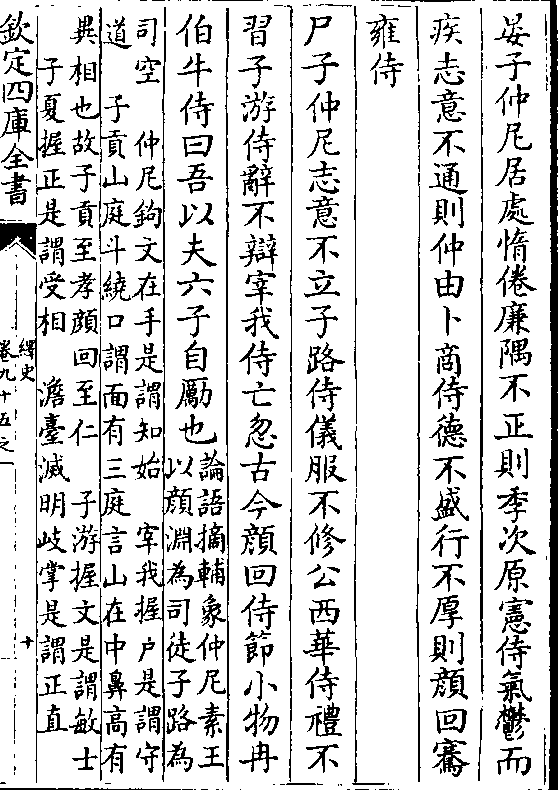 晏子仲尼居處惰倦廉隅不正則季次原憲侍氣鬱而
疾志意不通則仲由卜商侍德不盛行不厚則顔回騫
雍侍
尸子仲尼志意不立子路侍儀服不修公西華侍禮不
習子游侍辭不辯宰我侍亡忽古今顔回侍節小物冉
伯牛侍曰吾以夫六子自勵也
論語摘輔象仲尼素王
以顔淵為司徒子路為
司空　仲尼鉤文在手是謂知始　宰我握户是謂守
道　子貢山庭斗繞口謂面有三庭言山在中鼻高有
異相也故子貢至孝顔回至仁　子游握文是謂敏士
子夏握正是謂受相　澹臺滅明岐掌是謂正直
欽定四庫全書
繹史
卷九十五之一
十